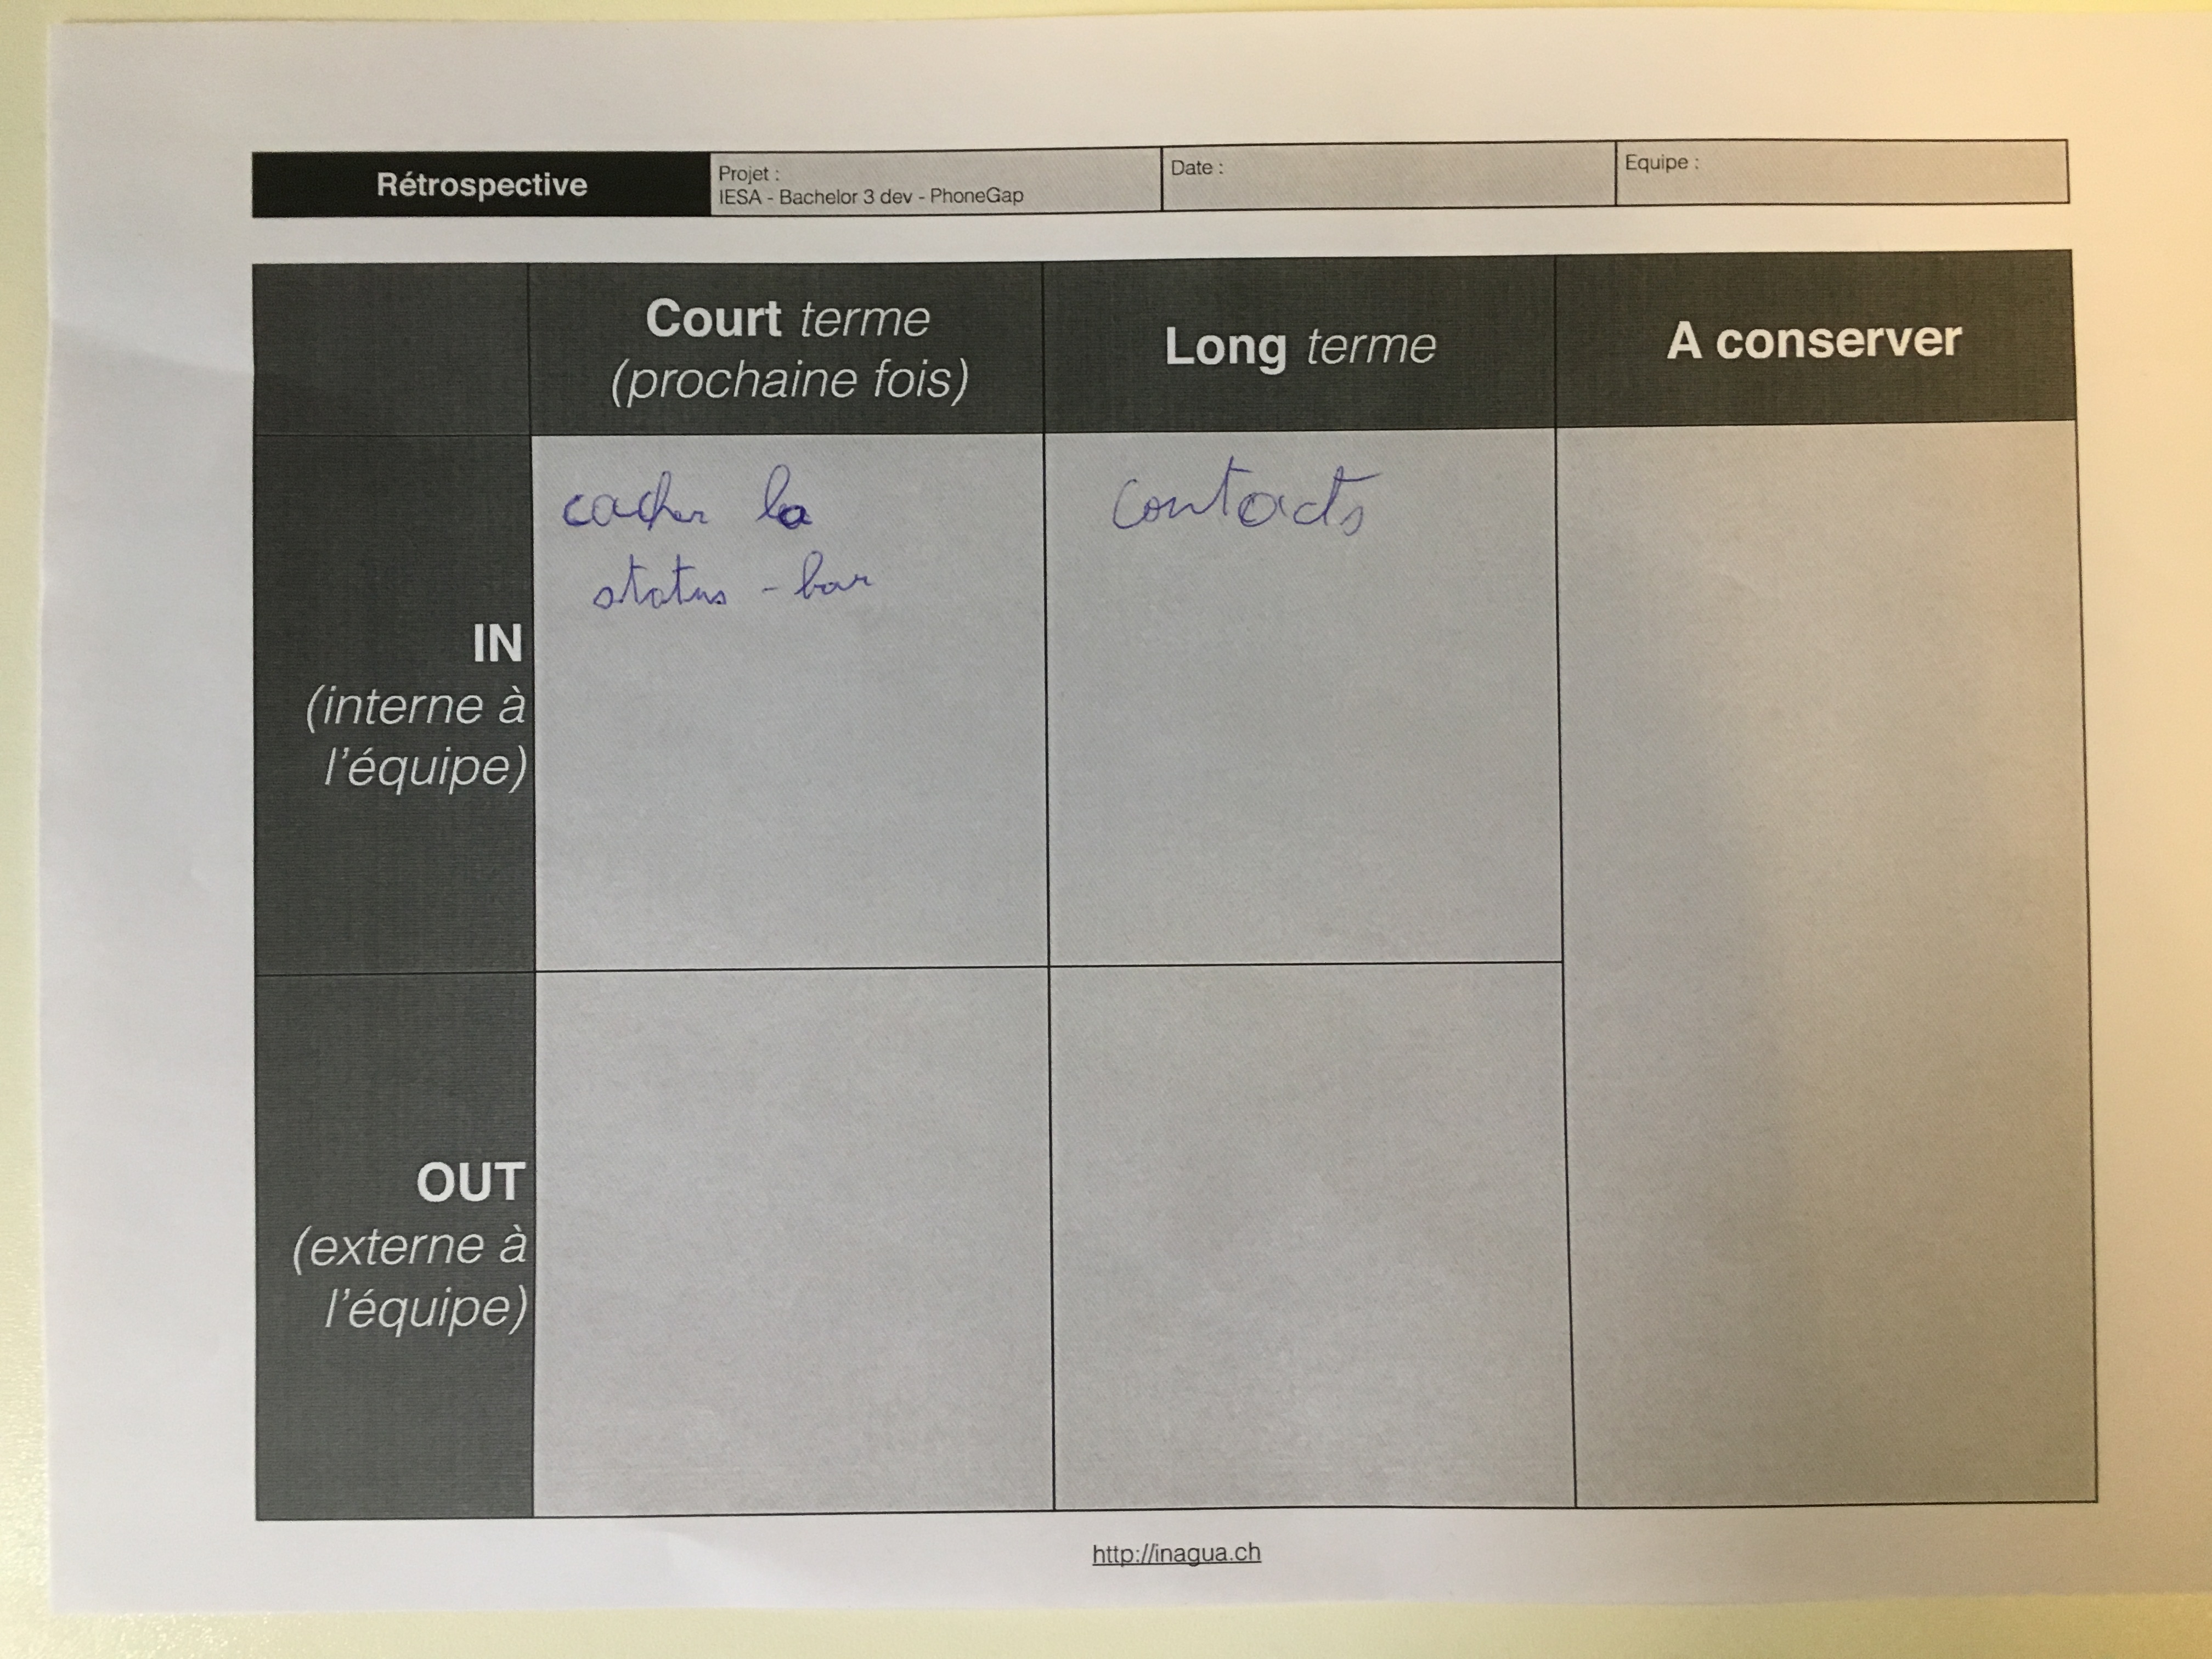 Rétrospective
Projet :
IESA - Bachelor 3 dev - PhoneGap
Date :
Equipe :
Court terme
(prochaine fois)
Long terme
A conserver
IN
(interne à
l'équipe)
cacher la
status-bar
Contacts
OUT
(externe à
l'équipe)
http://inagua.ch